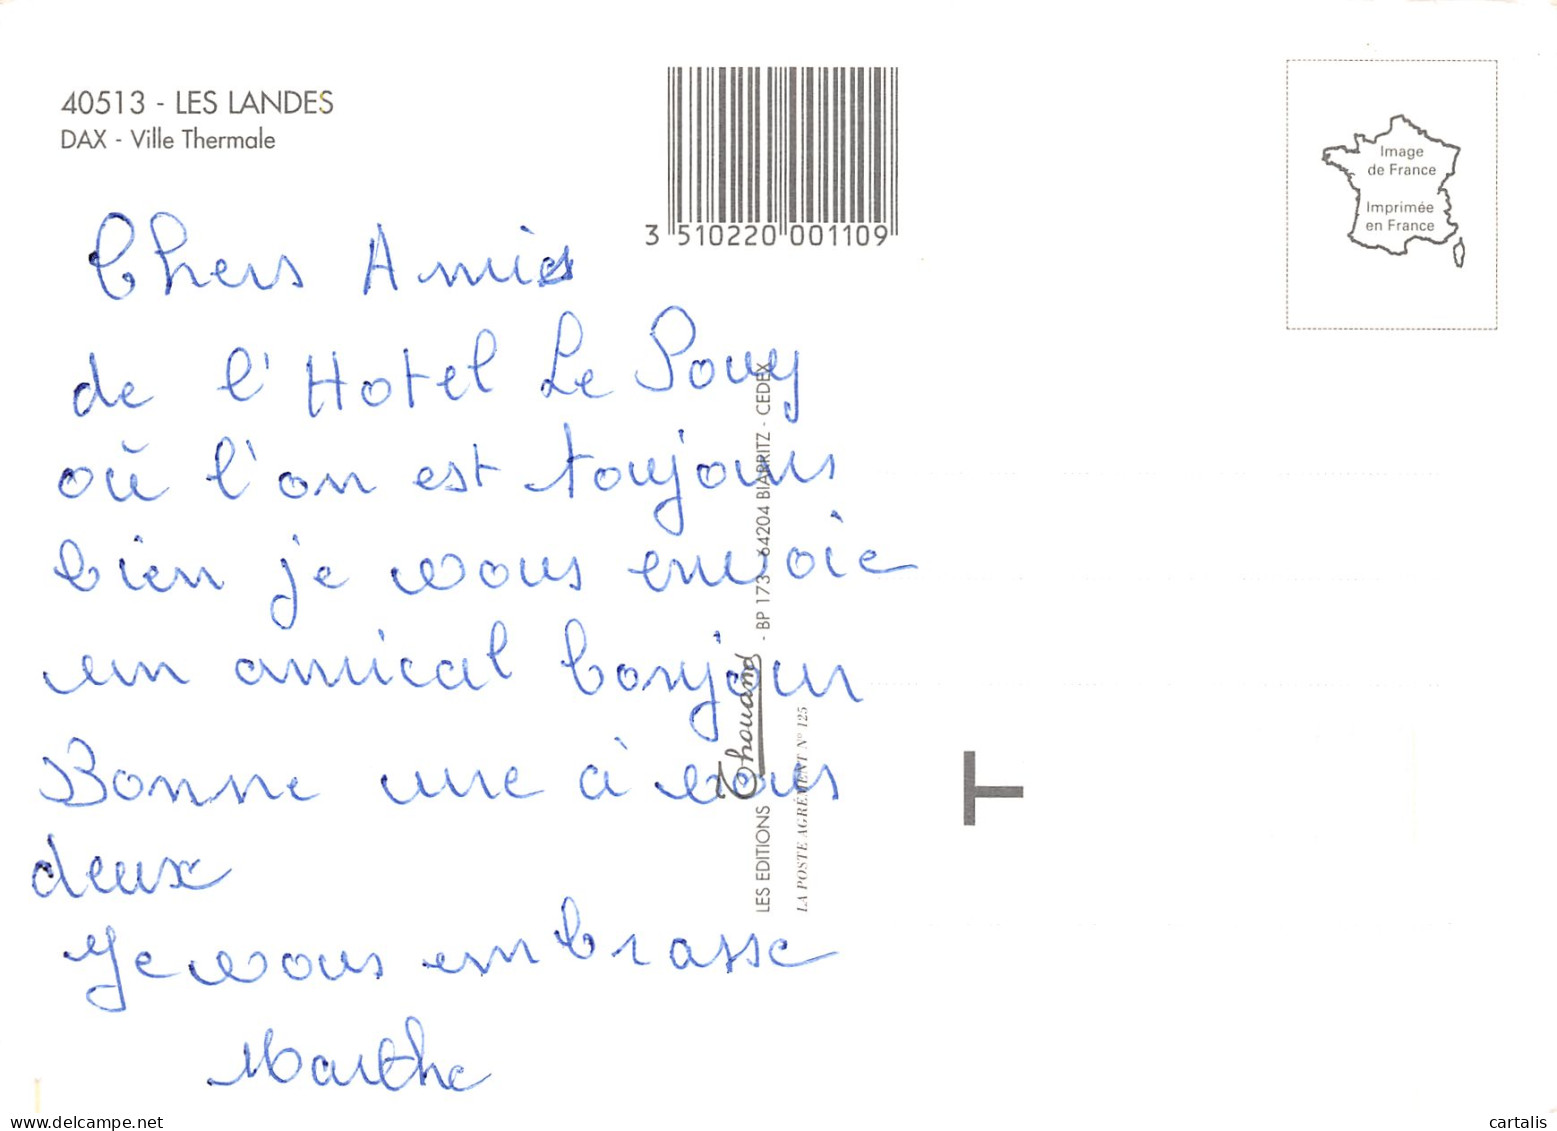 40513 - LES LANDES
DAX - Ville Thermale
3 510220 001109
Image
de France
Imprimée
en France
Chers Amies
de l'Hotel Le Pouy
où l'on est toujours
bien je vous envoie
un amical bonjour
Bonne une à vous
deux
Je vous embrasse
Marthe
LES EDITIONS Thouand - BP 173 - 64204 BIARRITZ - CEDEX
LA POSTE AGRÉMENT N° 125
T
cartalis